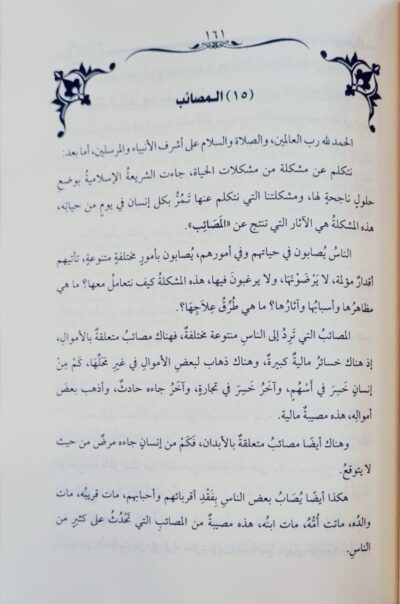 ١٦١
(١٥) المصائب
الحمد لله رب العالمين، والصلاة والسلام على أشرف الأنبياء والمرسلين، أما بعد:
نتكلم عن مشكلة من مشكلات الحياة، جاءت الشريعةُ الإسلامية بوضعِ
حلولٍ ناجحةٍ لها، ومشكلتنا التي نتكلم عنها تَمُرُّ بكل إنسان في يومٍ من حياتِه،
هذه المشكلةُ هي الآثار التي تنتج عن «المَصَائِب».
الناسُ يُصابون في حياتهم وفي أمورهم، يُصابون بأمورٍ مختلفةٍ متنوعة، تأتيهم
أقدارٌ مؤلمة، لا يَرْضَوْنَهَا، ولا يرغبون فيها، هذه المشكلةُ كيف نتعاملُ معها؟ ما هي
مظاهرُها وأسبابُها وآثارُها؟ ما هي طُرُقُ عِلَاجِهَا؟.
المصائبُ التي تَرِدُ إلى الناسِ متنوعة مختلفةٌ، فهناك مصائبُ متعلقةٌ بالأموالِ،
إذ هناك خسائرُ ماليةٌ كبيرةٌ، وهناك ذهاب لبعضِ الأموالِ في غيرِ محلِّها، كَمْ مِنْ
إنسانٍ خَسِرَ في أسْهُمٍ، وآخَرُ خَسِرَ في تجارةٍ، وآخَرُ جاءه حادثٌ، وأذهب بعضَ
أموالِه، هذه مصيبةٌ مالية.
وهناك أيضًا مصائبُ متعلقةٌ بالأبدان، فكَمْ من إنسانٍ جاءه مرضٌ من حيث
لا يتوقعُ.
هكذا أيضًا يُصَابُ بعض الناسِ بِفَقْدِ أقربائهم وأحبابهم، مات قريبُه، مات
والدُه، ماتت أُمُّه، مات ابنُه، هذه مصيبةٌ من المصائبِ التي تَحْدُثُ على كثيرٍ من
الناسِ.